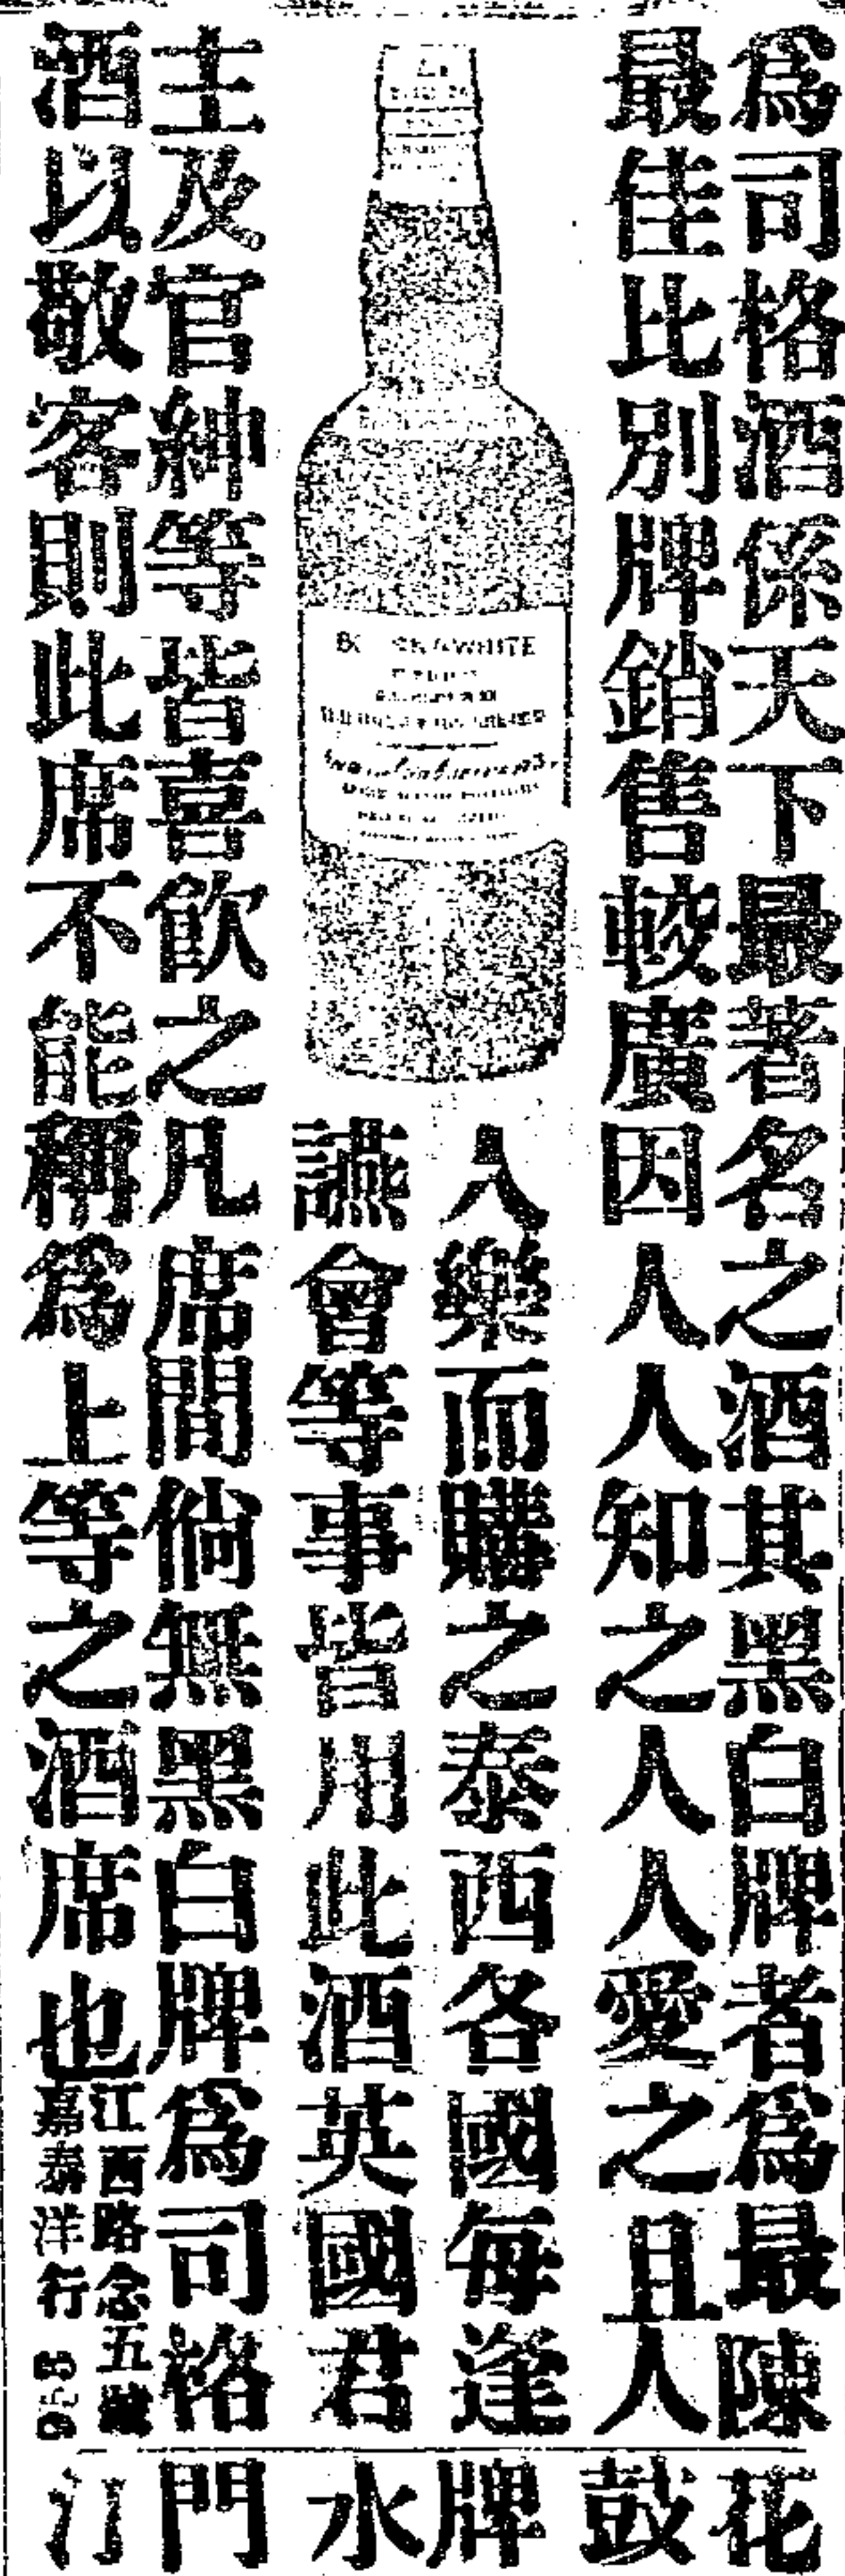 為司格酒係天下最著名之酒其黑白牌者為最陳
最佳比別牌銷售較廣因人人知之人人愛之且人
人樂而購之泰西各國每逢
讌會等事皆用此酒英國君
主及官紳等皆喜飲之凡席間倘無黑白牌為司格
酒以敬客則此席不能稱為上等之酒席也
江西路念五號
嘉泰洋行
WHITE
花
鼓
牌
水
門
汀